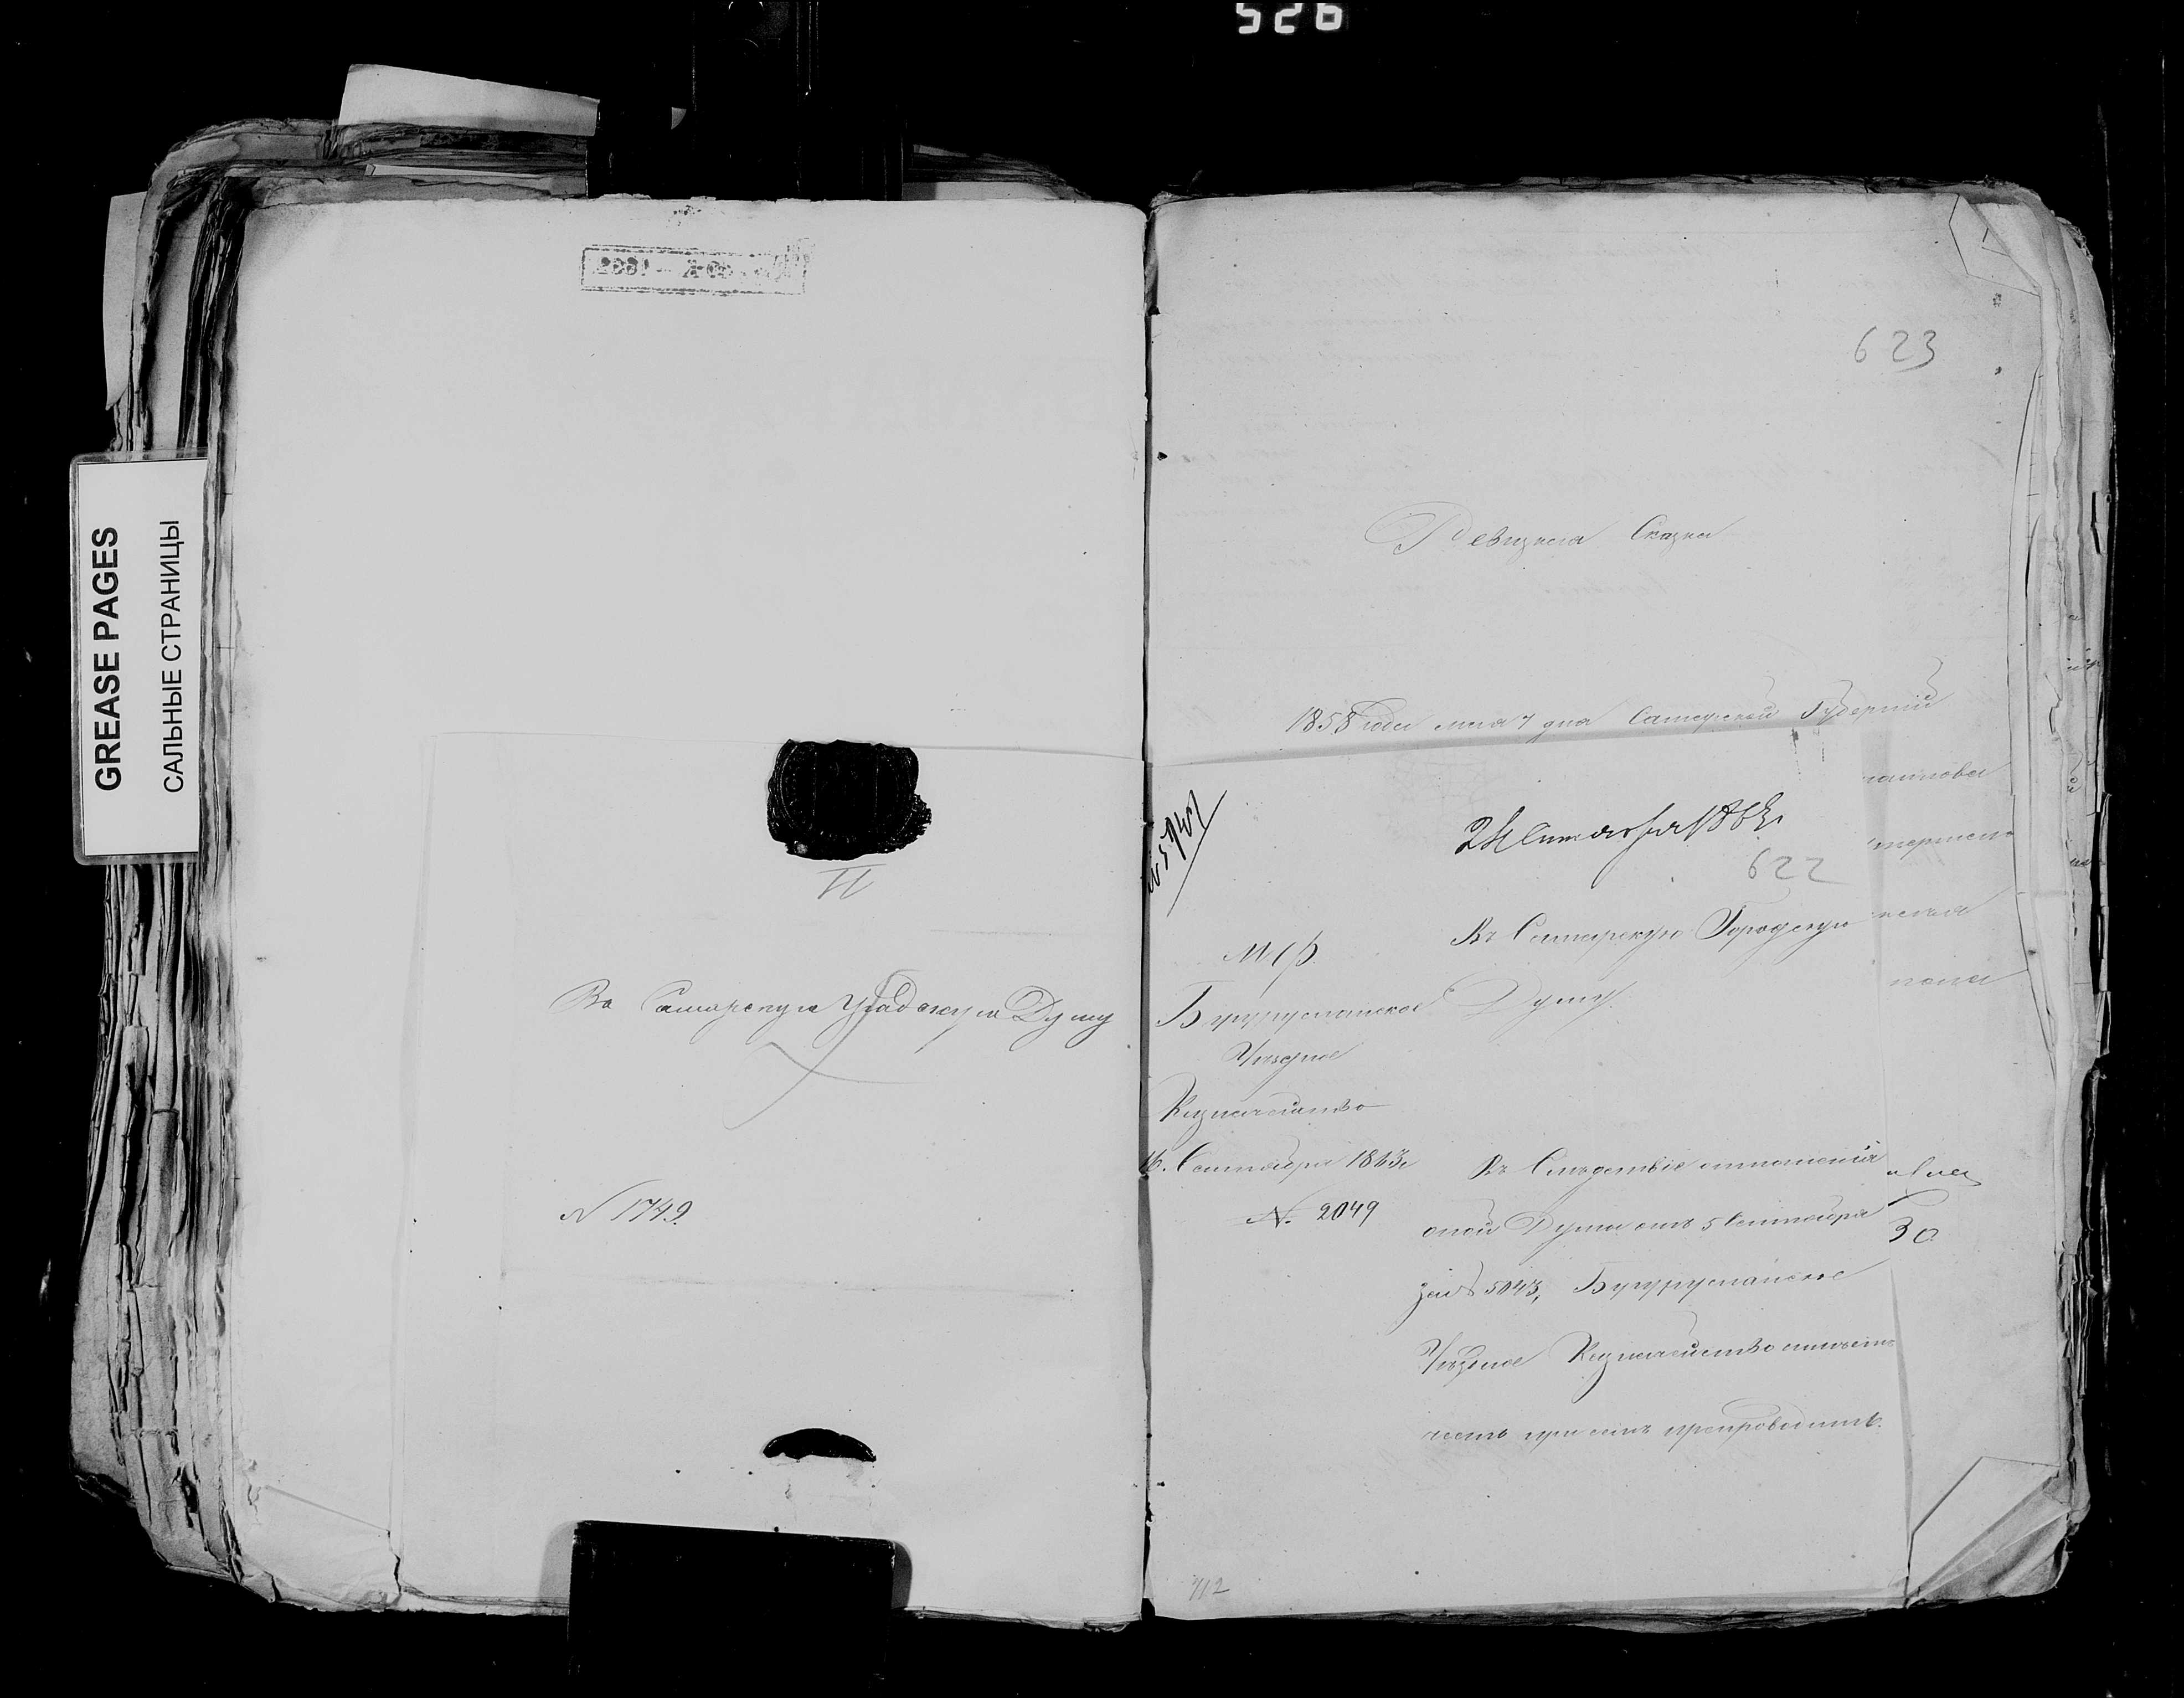 526
GREASE PAGES
САЛЬНЫЕ СТРАНИЦЫ
Въ Самарскую Градскую Думу
N 1749.
623
Ревизская Сказка
1858 года мая 7 дня Самарской Губерніи
24 Сентября 1863.
622
М. Ф.
Бугурусланское
Уѣздное
Казначейство
16. Сентября 1863.
N. 2049
Въ Самарскую Городскую
Думу.
Въ Слѣдствіе отношенія
оной Думы отъ 5 Сентября
за № 5043, Бугурусланское
Уѣздное Казначейство имѣетъ
честь при семъ препроводить
30
712